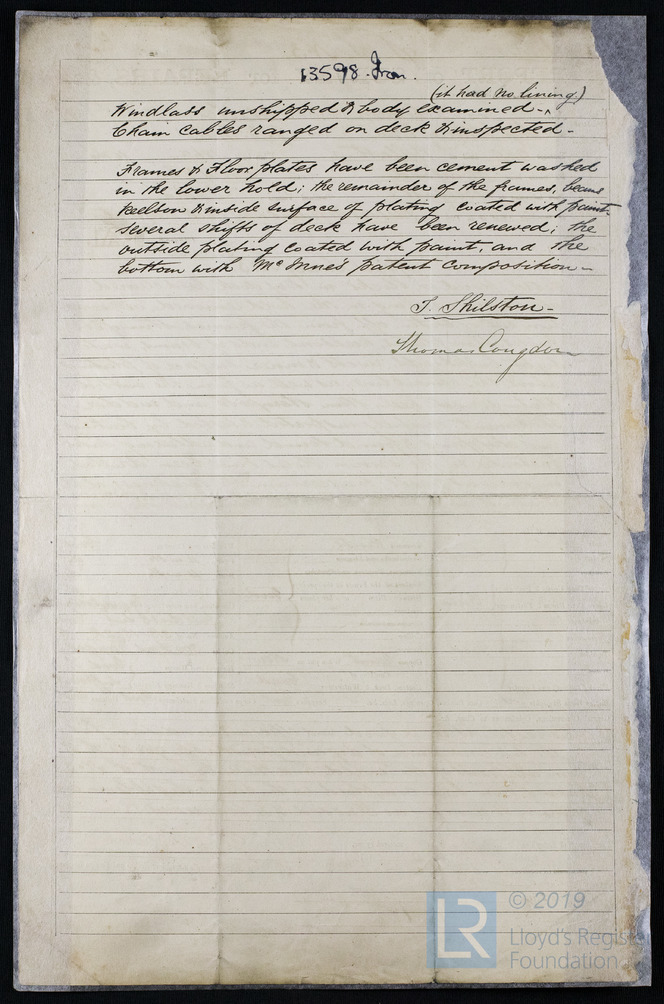 13598. Iron.
(it had no lining)
Windlass unshipped & body examined - ^
Chain Cables ranged on deck & inspected -
Frames & Floor plates have been cement washed
in the lower hold; the remainder of the frames, beams
keelson & inside surface of plating coated with paint.
several shifts of deck have been renewed; the
outside plating coated with paint, and the
bottom with McInne's patent composition -
T. Shilston -
Thomas Congdon
LR
© 2019
Lloyd's Register
Foundation